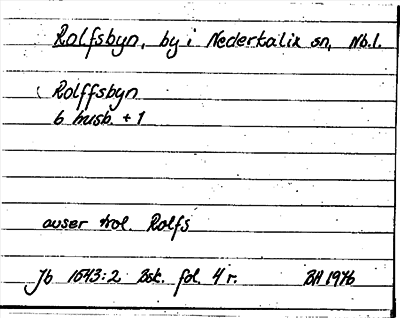 Rolfsbyn, by i Nederkalix sn, Nb.l.
Rolffsbyn
6 husb. + 1
avser trol. Rolfs
Jb 1543:2 Bst. fol. 4 r. BH 1976